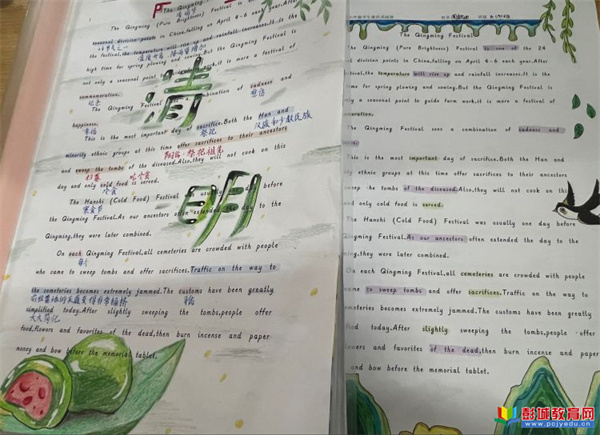 The Qingming (Pure Brightness) Festival is
seasonal division points in China,falling on April 4-6 each year.After
the festival,the temperature will rise up and rainfall increases.It is the
high time for spring plowing and sowing.But the Qingming Festival is
not only a seasonal point it is more a festival of
commemoration.
纪念
The Qingming Festival combination of sadness and
happiness.
悲伤
幸福
This is the most important day of sacrifice.Both the Han and
祭祀
汉族和少数民族
minority ethnic groups at this time offer sacrifices to their ancestors
and sweep the tombs of the diseased.Also,they will not cook on this
扫墓
day and only cold food is served.
冷食
The Hanshi (Cold Food) Festival was usually one day before
寒食节
the Qingming Festival.As our ancestors often extended the day to the
Qingming,they were later combined.
On each Qingming Festival,all cemeteries are crowded with people
每个
who came to sweep tombs and offer sacrifices.Traffic on the way to
the cemeteries becomes extremely jammed.The customs have been greatly
simplified today.After slightly sweeping the tombs,people offer
大大简化
food,flowers and favorites of the dead,then burn incense and paper
money and bow before the memorial tablet.
清
明
The Qingming Festival
The Qingming (Pure Brightness) Festival is one of the 24
division points in China,falling on April 4-6 each year.After
festival,the temperature will rise up and rainfall increases.It is the
time for spring plowing and sowing.But the Qingming Festival is
only a seasonal point to guide farm work,it is more a festival of
The Qingming Festival sees a combination of sadness and
This is the most important day of sacrifice.Both the Han and
ethnic groups at this time offer sacrifices to their ancestors
sweep the tombs of the diseased.Also,they will not cook on this
and only cold food is served.
The Hanshi (Cold Food) Festival was usually one day before
Qingming Festival.As our ancestors often extended the day to the
they were later combined.
On each Qingming Festival,all cemeteries are crowded with people
came to sweep tombs and offer sacrifices.Traffic on the way to
cemeteries becomes extremely jammed.The customs have been greatly
today.After slightly sweeping the tombs,people offer
and favorites of the dead,then burn incense and paper
and bow before the memorial tablet.
彭城教育网
www.pcjyedu.cn